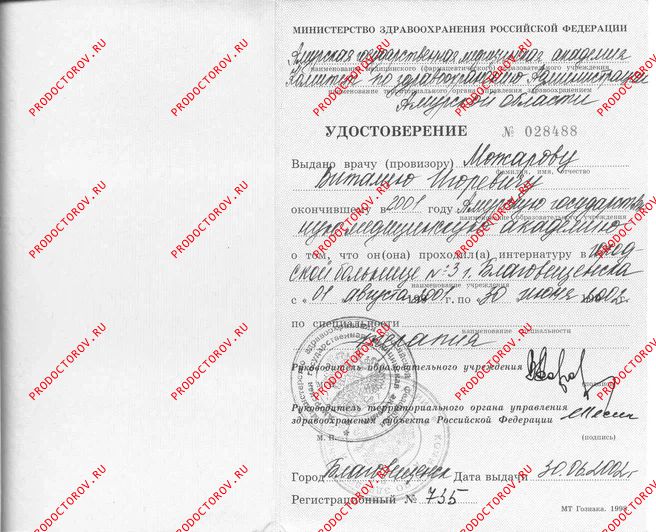 МИНИСТЕРСТВО ЗДРАВООХРАНЕНИЯ РОССИЙСКОЙ ФЕДЕРАЦИИ
Амурская государственная медицинская академия
наименование медицинского (фармацевтического) образовательного учреждения
Комитет по здравоохранению Администрации
наименование территориального органа управления здравоохранением
Амурской области
УДОСТОВЕРЕНИЕ № 028488
Выдано врачу (провизору) Можарову
фамилия, имя, отчество
Виталию Игоревичу
окончившему в 2001 году Амурскую государствен
наименование образовательного учреждения
ную медицинскую академию
о том, что он(она) проходил(а) интернатуру в город
ской больнице №3 г. Благовещенска
наименование учреждения
с «01 августа 2001 г. по 30 июня 2002
по специальности
наименование специальности
терапия
Руководитель образовательного учреждения
(подпись)
Руководитель территориального органа управления
здравоохранения субъекта Российской Федерации
М. П.
(подпись)
Город Благовещенск Дата выдачи 30.06.2002г
Регистрационный № 735
МТ Гознака. 1998.
PRODOCTOROV.RU